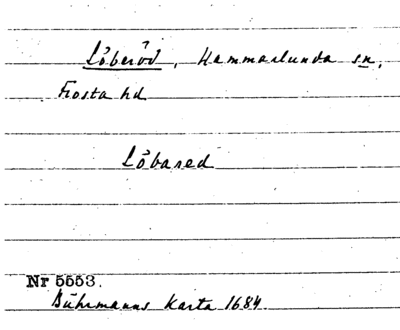 Löberöd, Hammarlunda sn,
Frosta hd
Löbared
Nr 5553.
Bührmanns Karta 1684.